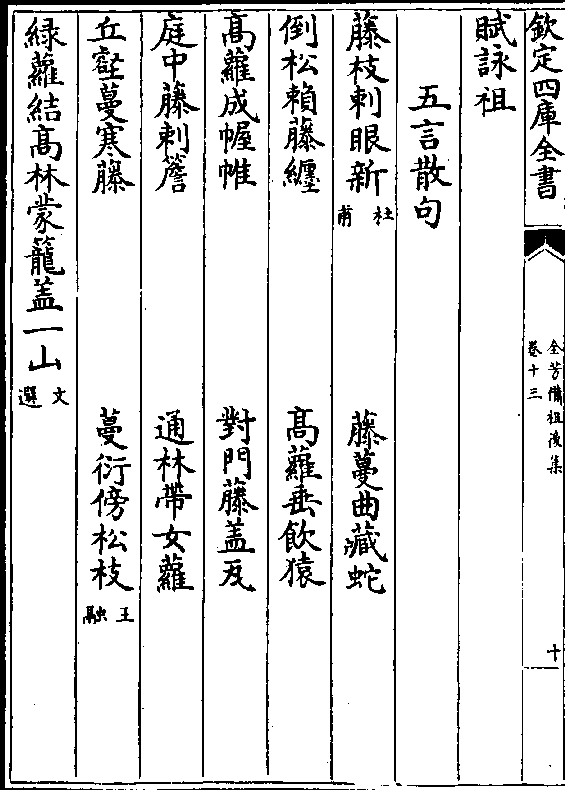 欽定四庫全書
全芳備祖後集
卷十三
十
賦詠祖
五言散句
藤枝刺眼新 杜甫 藤蔓曲藏蛇
倒松賴藤纏 高蘿垂飲猿
高蘿成幄帷 對門藤盖瓦
庭中藤刺簷 通林帶女蘿
丘壑蔓寒藤 蔓衍傍松枝 王融
緑蘿結高林蒙籠盖一山 文選